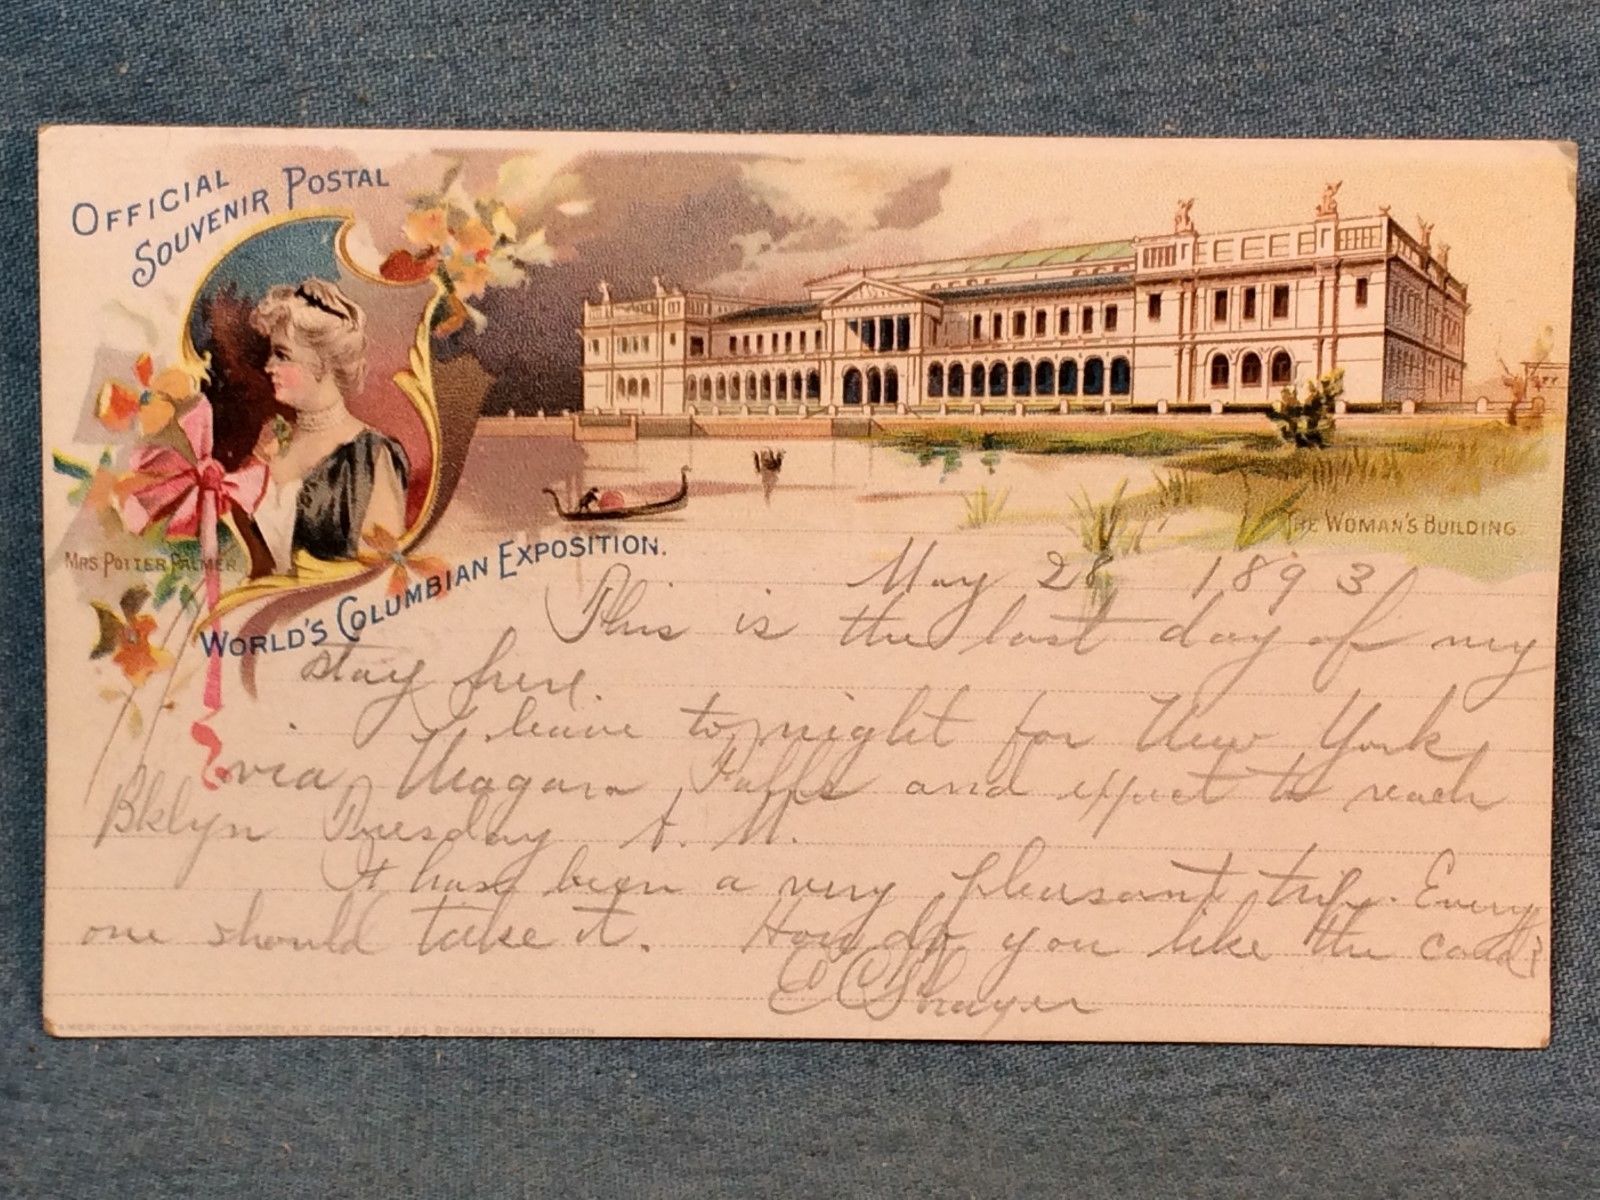 OFFICIAL
SOUVENIR POSTAL
MRS POTTER PALMER
WORLD'S COLUMBIAN EXPOSITION.
THE WOMAN'S BUILDING
May 28 1893
This is the last day of my
stay here.
I leave to night for New York
via Niagara Falls and expect to reach
Bklyn Tuesday A.M.
It has been a very pleasant trip. Every
one should take it. How do you like the card?
E C Thayer
AMERICAN LITHOGRAPHIC COMPANY, N.Y. COPYRIGHT, 1893 BY CHARLES W. GOLDSMITH